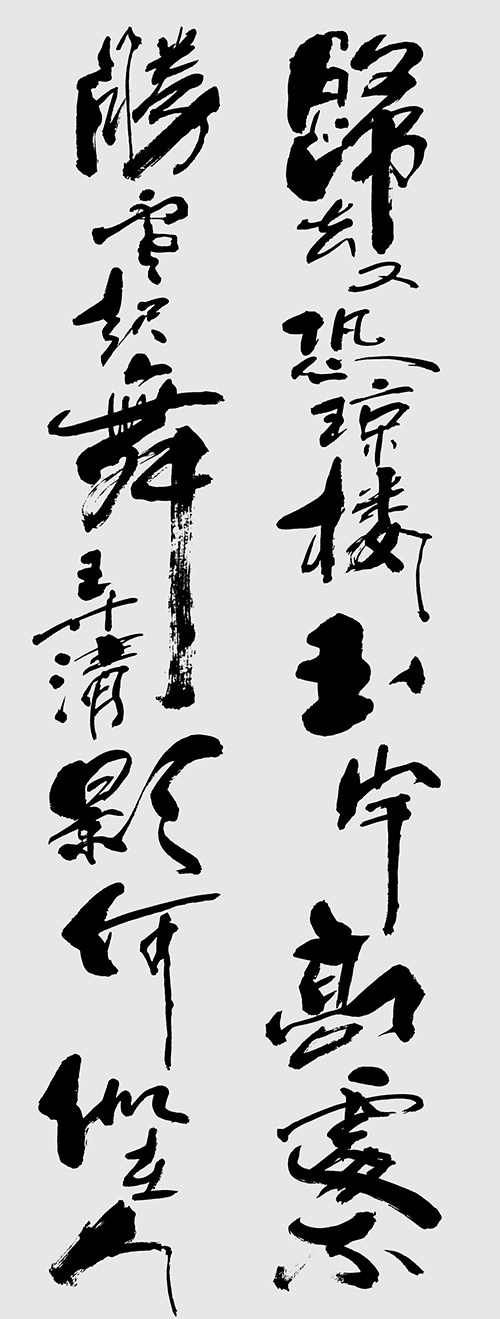 歸去又恐琼楼玉宇高處不
勝寒起舞弄清影何似在人